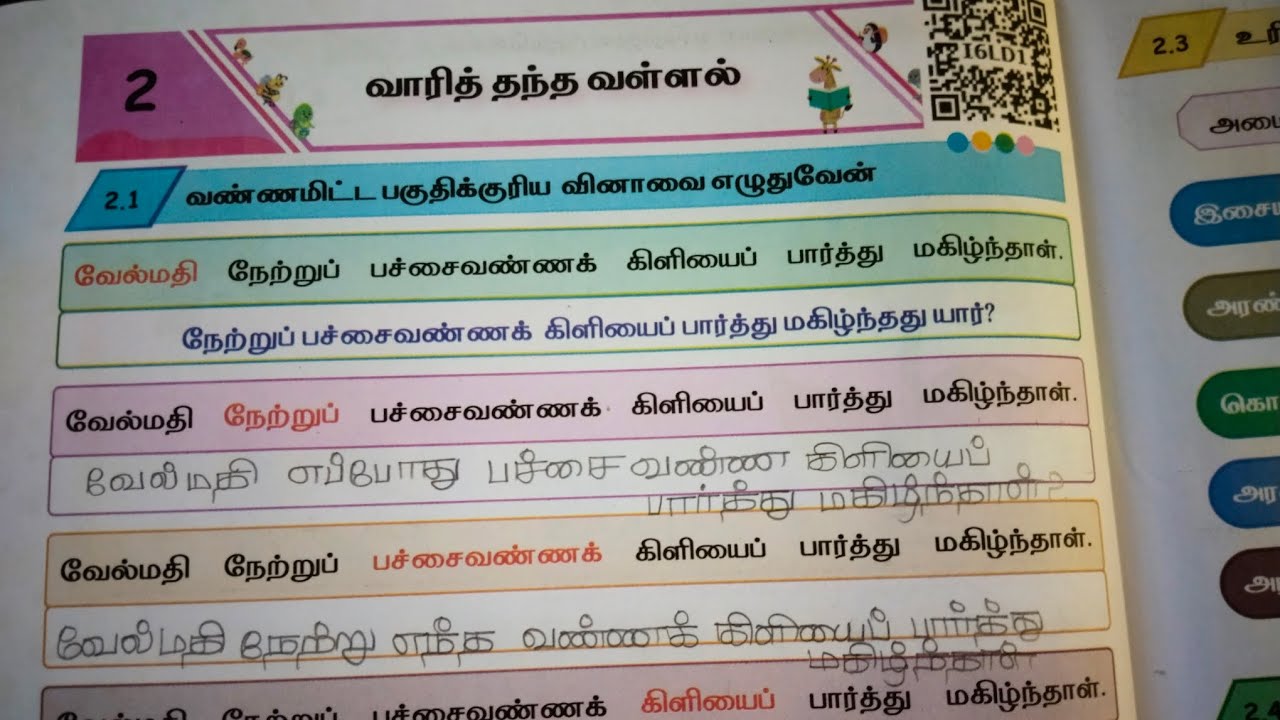 2
வாரித் தந்த வள்ளல்
I6LD1
2.1 வண்ணமிட்ட பகுதிக்குரிய வினாவை எழுதுவேன்
வேல்மதி நேற்றுப் பச்சைவண்ணக் கிளியைப் பார்த்து மகிழ்ந்தாள்.
நேற்றுப் பச்சைவண்ணக் கிளியைப் பார்த்து மகிழ்ந்தது யார்?
வேல்மதி நேற்றுப் பச்சைவண்ணக் கிளியைப் பார்த்து மகிழ்ந்தாள்.
வேல்மதி எப்போது பச்சை வண்ண கிளியைப்
பார்த்து மகிழ்ந்தாள்?
வேல்மதி நேற்றுப் பச்சைவண்ணக் கிளியைப் பார்த்து மகிழ்ந்தாள்.
வேல்மதி நேற்று எந்த வண்ணக் கிளியைப் பார்த்து
மகிழ்ந்தாள்
வேல்மதி நேற்றுப் பச்சைவண்ணக் கிளியைப் பார்த்து மகிழ்ந்தாள்.
2.3
2.4